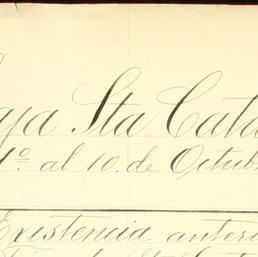 ja Sta Cata
1º. al 10. de Octub
Existencia anteri